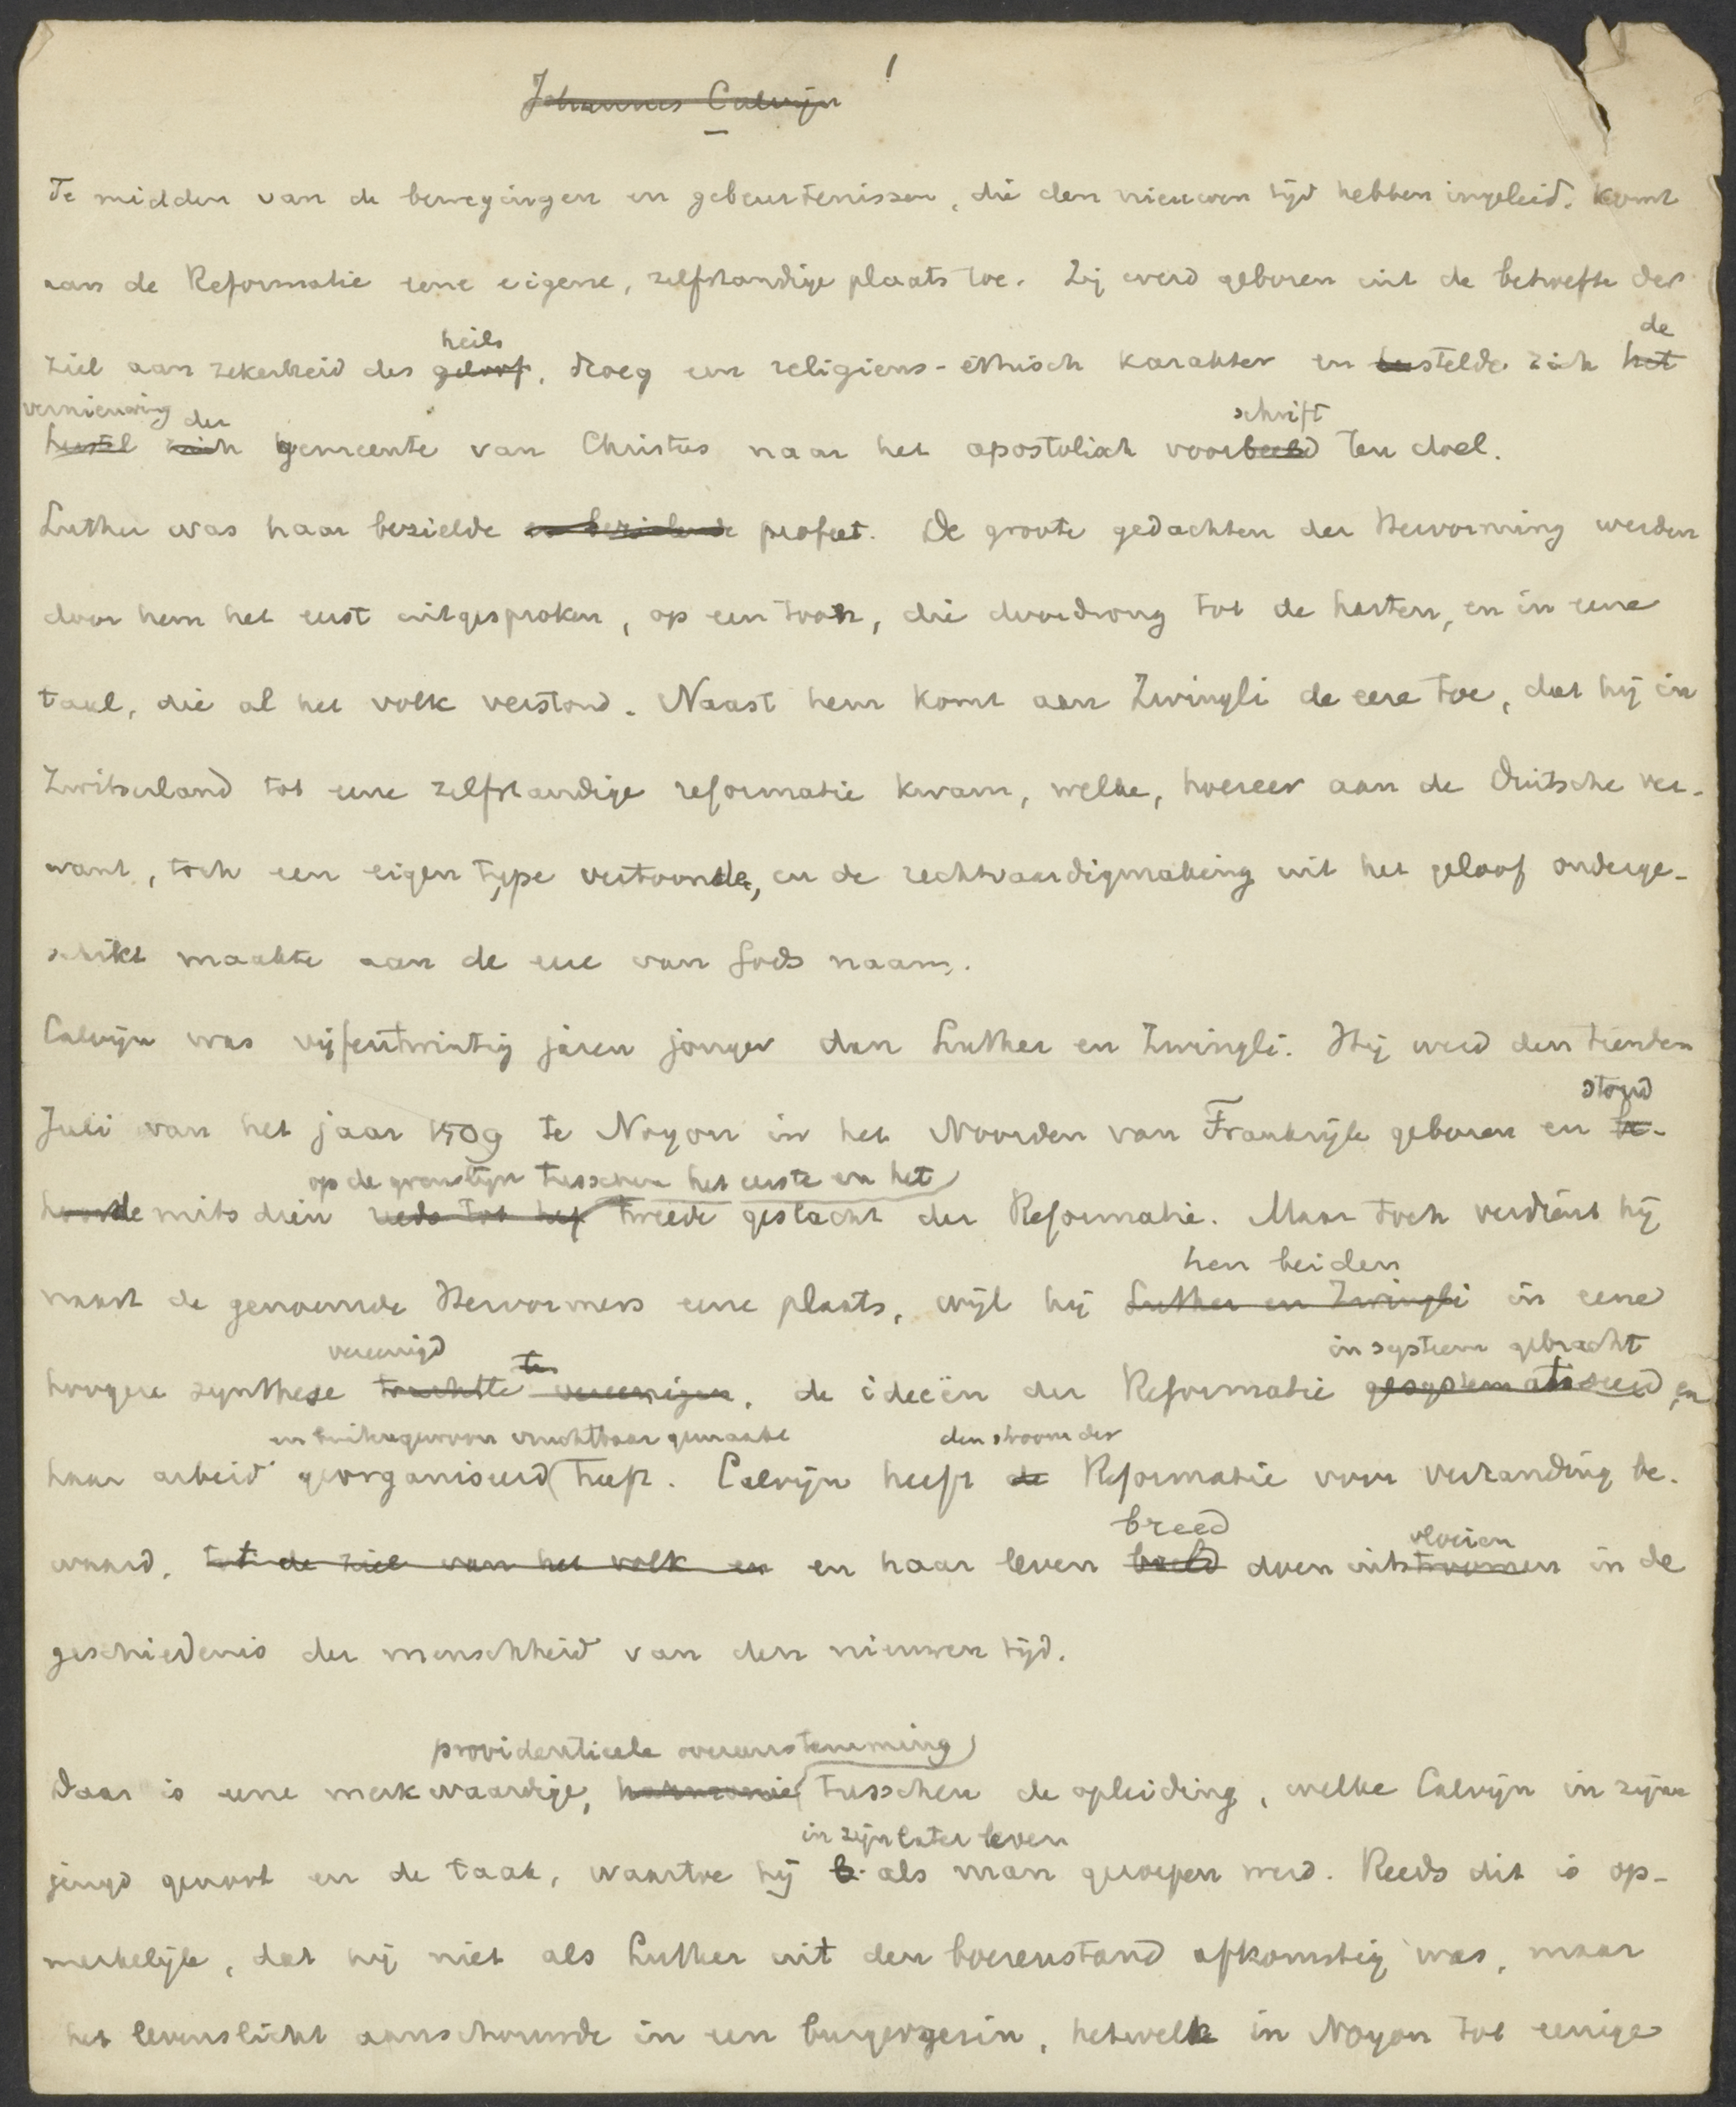 1
Johannes Calvijn
Te midden van de bewegingen en gebeurtenissen, die den nieuwen tijd hebben ingeleid, komt
aan de Reformatie eene eigene, zelfstandige plaats toe. Zij werd geboren uit de behoefte der
heils de
ziel aan zekerheid des geloof, droeg een religieus-ethisch karakter en stelde zich het
vernieuwing der schrift
herstel zich gemeente van Christus naar het apostolisch voorbeeld ten doel.
Luther was haar bezielde en bezielende profeet. De groote gedachten der Hervorming werden
door hem het eerst uitgesproken, op een toon, die doordrong tot de harten, en in eene
taal, die al het volk verstond. Naast hem komt aan Zwingli de eere toe, dat hij in
Zwitserland tot eene zelfstandige reformatie kwam, welke, hoezeer aan de Duitsche ver-
want, toch een eigen type vertoonde, en de rechtvaardigmaking uit het geloof onderge-
schikt maakte aan de eere van Gods naam.
Calvijn was vijfentwintig jaren jonger dan Luther en Zwingli. Hij werd den tienden
stond
Juli van het jaar 1509 te Noyon in het Noorden van Frankrijk geboren en be-
op de grenslijn tusschen het eerste en het
hoorde mitsdien reeds tot het tweede geslacht der Reformatie. Maar toch verdient hij
hen beiden
naast de genoemde Hervormers eene plaats, wijl hij Luther en Zwingli in eene
vereenigd te in systeem gebracht
hoogere synthese trachtte vereenigen, de ideeën der Reformatie gesystematiseerd, en
en buitengewoon vruchtbaar gemaakt den stroom der
haar arbeid georganiseerd heeft. Calvijn heeft de Reformatie voor verzanding be-
breed vloeien
waard, tot de ziel van het volk en en haar leven beeld doen uitstroomen in de
geschiedenis der menschheid van den nieuwen tijd.
providentieele overeenstemming
Daar is eene merkwaardige, harmonie tusschen de opleiding, welke Calvijn in zijne
in zijn later leven
jeugd genoot en de taak, waartoe hij b. als man geroepen werd. Reeds dit is op-
merkelijk, dat hij niet als Luther uit den boerenstand afkomstig was, maar
het levenslicht aanschouwde in een burgergezin, hetwelk in Noyon tot eenige